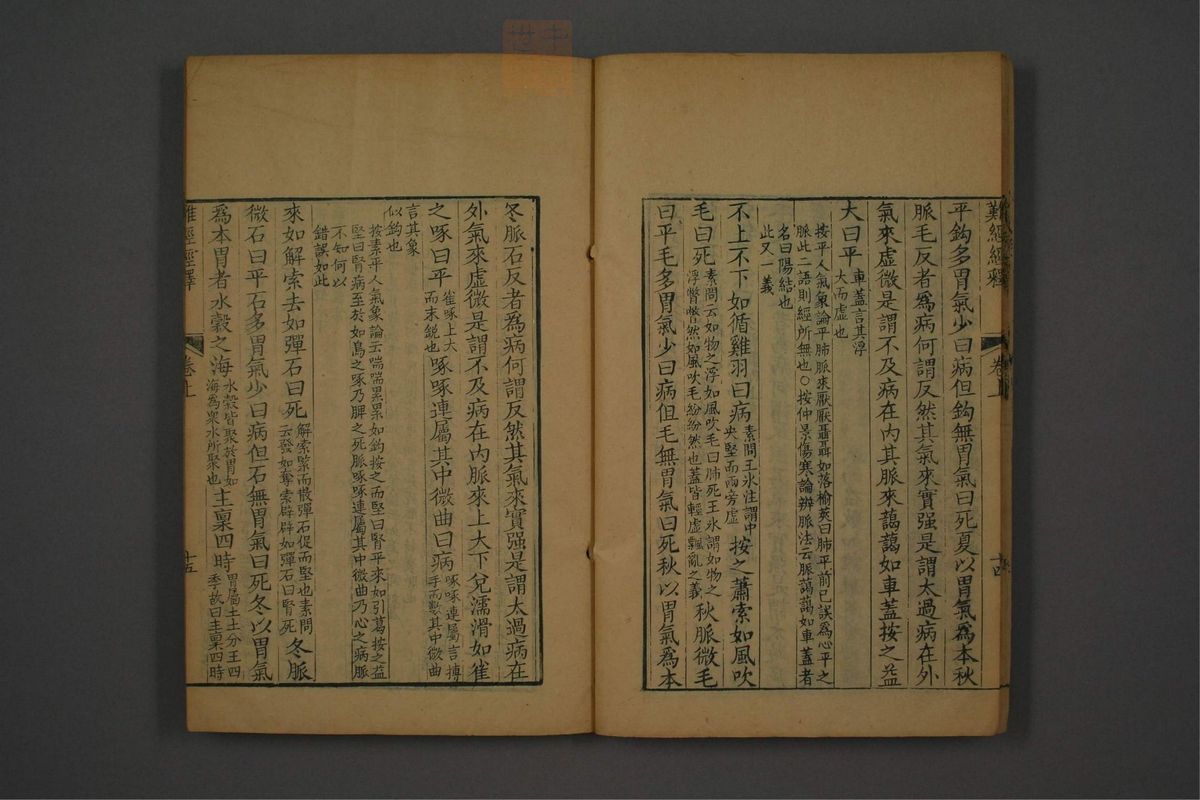 難經經釋
卷上
十四
平鈎多胃氣少曰病但鈎無胃氣曰死夏以胃氣為本秋
脈毛反者為病何謂反然其氣來實强是謂太過病在外
氣來虛微是謂不及病在內其脈來藹藹如車蓋按之益
大曰平
車蓋言其浮
大而虛也
按平人氣象論平肺脈來厭厭聶聶如落榆莢曰肺平前已誤為心平之
脈此二語則經所無也○按仲景傷寒論辨脈法云脈藹藹如車蓋者
名曰陽結也
此又一義
不上不下如循雞羽曰病
素問王氷注謂中
央堅而兩旁虛
按之蕭索如風吹
毛曰死
素問云如物之浮如風吹毛曰肺死王氷謂如物之
浮瞥瞥然如風吹毛紛紛然也蓋皆輕虛飄亂之義
秋脈微毛
曰平毛多胃氣少曰病但毛無胃氣曰死秋以胃氣為本
冬脈石反者為病何謂反然其氣來實强是謂太過病在
外氣來虛微是謂不及病在內脈來上大下兌濡滑如雀
之啄曰平
雀啄上大
而末銳也
啄啄連屬其中微曲曰病
啄啄連屬言搏
手而數其中微曲
言其象
似鈎也
按素平人氣象論云喘喘累累如鈎按之而堅曰腎平來如引葛按之益
堅曰腎病至於如鳥之啄乃脾之死脈啄啄連屬其中微曲乃心之病脈
不知何以
錯誤如此
來如解索去如彈石曰死
解索緊而散彈石促而堅也素問
云發如奪索辟辟如彈石曰腎死
冬脈
微石曰平石多胃氣少曰病但石無胃氣曰死冬以胃氣
為本胃者水穀之海
水穀皆聚於胃如
海為衆水所聚也
主稟四時
胃屬土土分王四
季故曰主稟四時
難經經釋
卷上
十五